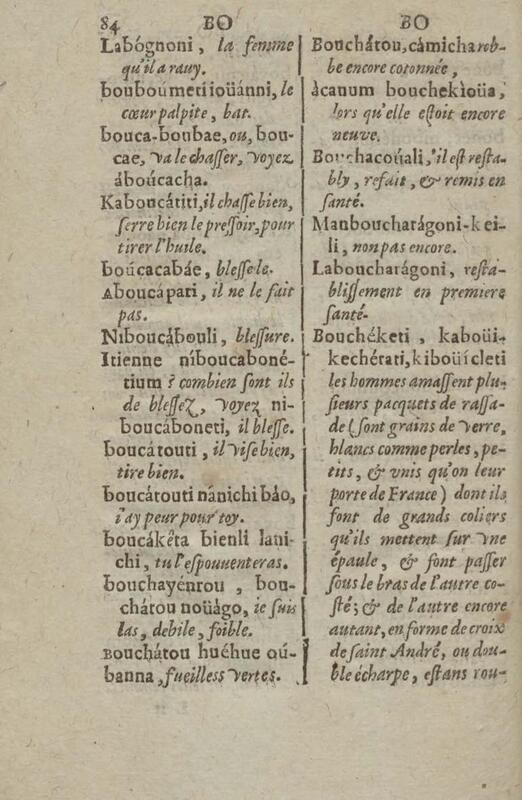 84 BO BO
Labógnoni, la femme
qu'il a rauy.
bouboúmeti ioüánni, le
cœur palpite, bat.
bouca-boubae, ou, bou-
cae, va le chasser, voyez
áboúcacha.
Kaboucátiti, il chasse bien,
serre bien le pressoir, pour
tirer l'huile.
boúcacabáe, blesse-le.
Aboucápati, il ne le fait
pas.
Niboucábouli, blessure.
Itienne níboucaboné-
tium? combien sont ils
de blessez, voyez ni-
boucáboneti, il blesse.
boucátouti, il vise bien,
tire bien.
boucátouti nánichi báo,
i'ay peur pour toy.
boucákêta bienli lani-
chi, tu l'espouuenteras.
bouchayénrou, bou-
chátou noüágo, ie suis
las, debile, foible.
Bouchátou huéhue oú-
banna, fueilless vertes.
Bouchátou, cámicha rob-
be encore cotonnée,
àcanum bouchekioüa,
lors qu'elle estoit encore
neuve.
Bouchacoúali, il est resta-
bly, refait, & remis en
santé.
Manboucharágoni-kei-
li, non pas encore.
Laboucharágoni, resta-
blissement en premiere
santé.
Bouchéketi, kaboüi-
kechérati, kiboüícleti
les hommes amassent plu-
sieurs pacquets de rassa-
de (sont grains de verre,
blancs comme perles, pe-
tits, & vnis qu'on leur
porte de France) dont ils
font de grands coliers
qu'ils mettent sur vne
épaule, & font passer
sous le bras de l'autre co-
sté; & de l'autre encore
autant, en forme de croix
de saint André, ou dou-
ble écharpe, estans rou-